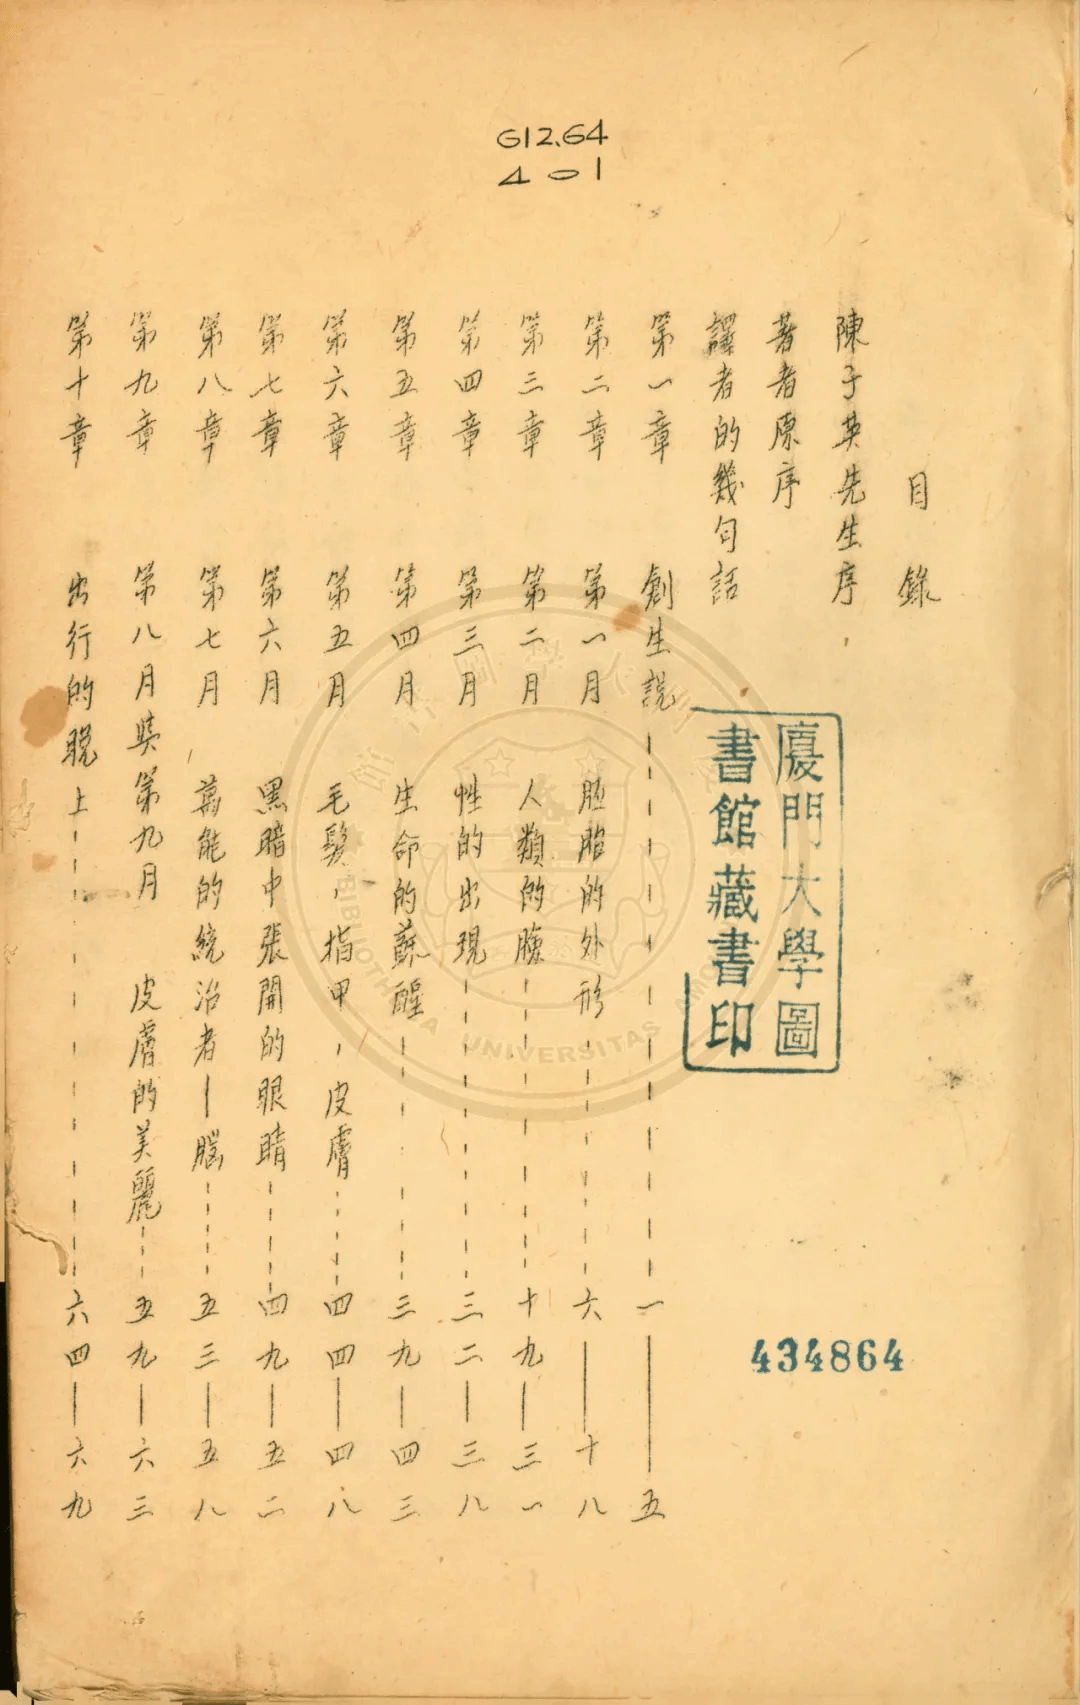 612.64
401
目錄
陳子英先生序
著者原序
譯者的幾句話
第一章 創生說 一——五
第二章 第一月 胚胎的外形 六——十八
第三章 第二月 人類的臉 十九——三一
第四章 第三月 性的出現 三二——三八
第五章 第四月 生命的蘇醒 三九——四三
第六章 第五月 毛髮,指甲,皮膚 四四——四八
第七章 第六月 黑暗中張開的眼睛 四九——五二
第八章 第七月 萬能的統治者——腦 五三——五八
第九章 第八月與第九月 皮膚的美麗 五九——六三
第十章 出行的晚上 六四——六九
廈門大學圖
書館藏書印
434864
BIBLIOTHECA UNIVERSITAS AMOI